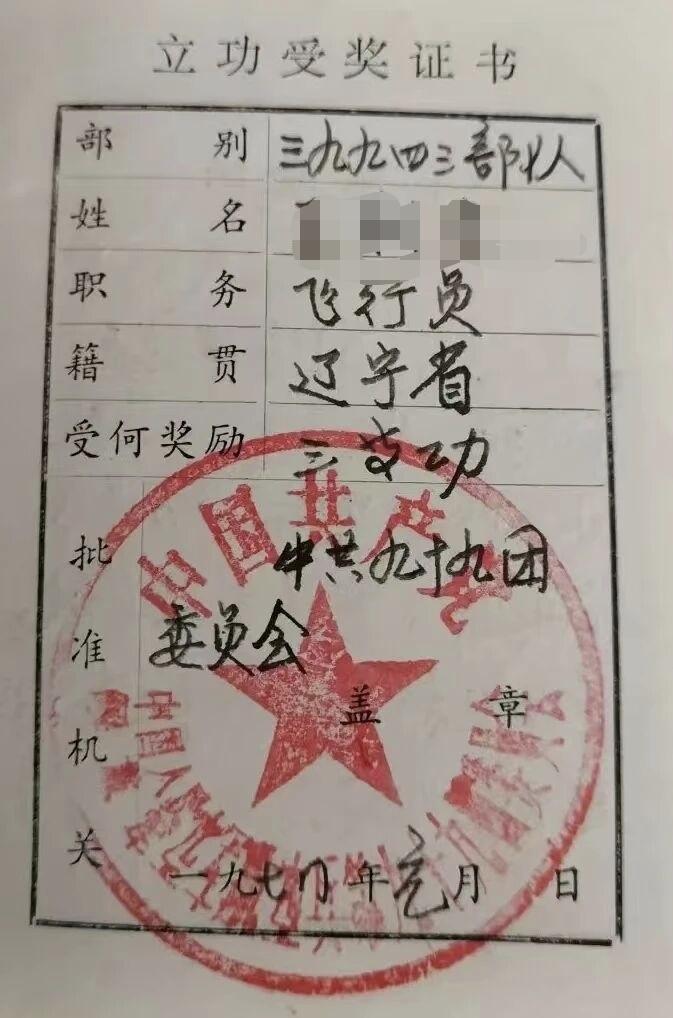 立功受奖证书
部别 三九九四三部队
姓名
职务 飞行员
籍贯 辽宁省
受何奖励 三等功
批准机关 中共九十九团
委员会
盖章
一九七 年元月 日
中国共产党
中国人民解放军
委员会